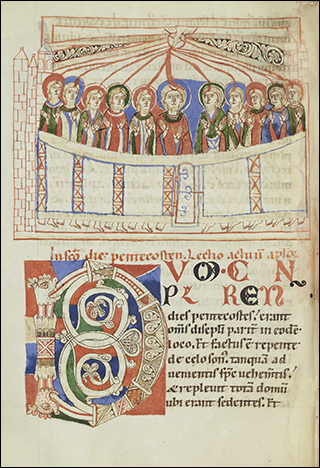 In scō die pentecosten. Lectio actuū aplor̄
D V O · C N
P L REN
dies pentecostes, erant
om̄s discipli pariť in eodē
loco. Et factus ē repente
de celo son᷒, tanquā ad
uenientis sp̄c uehemtis.
& repleuit totā domū
ubi erant sedentes. Et